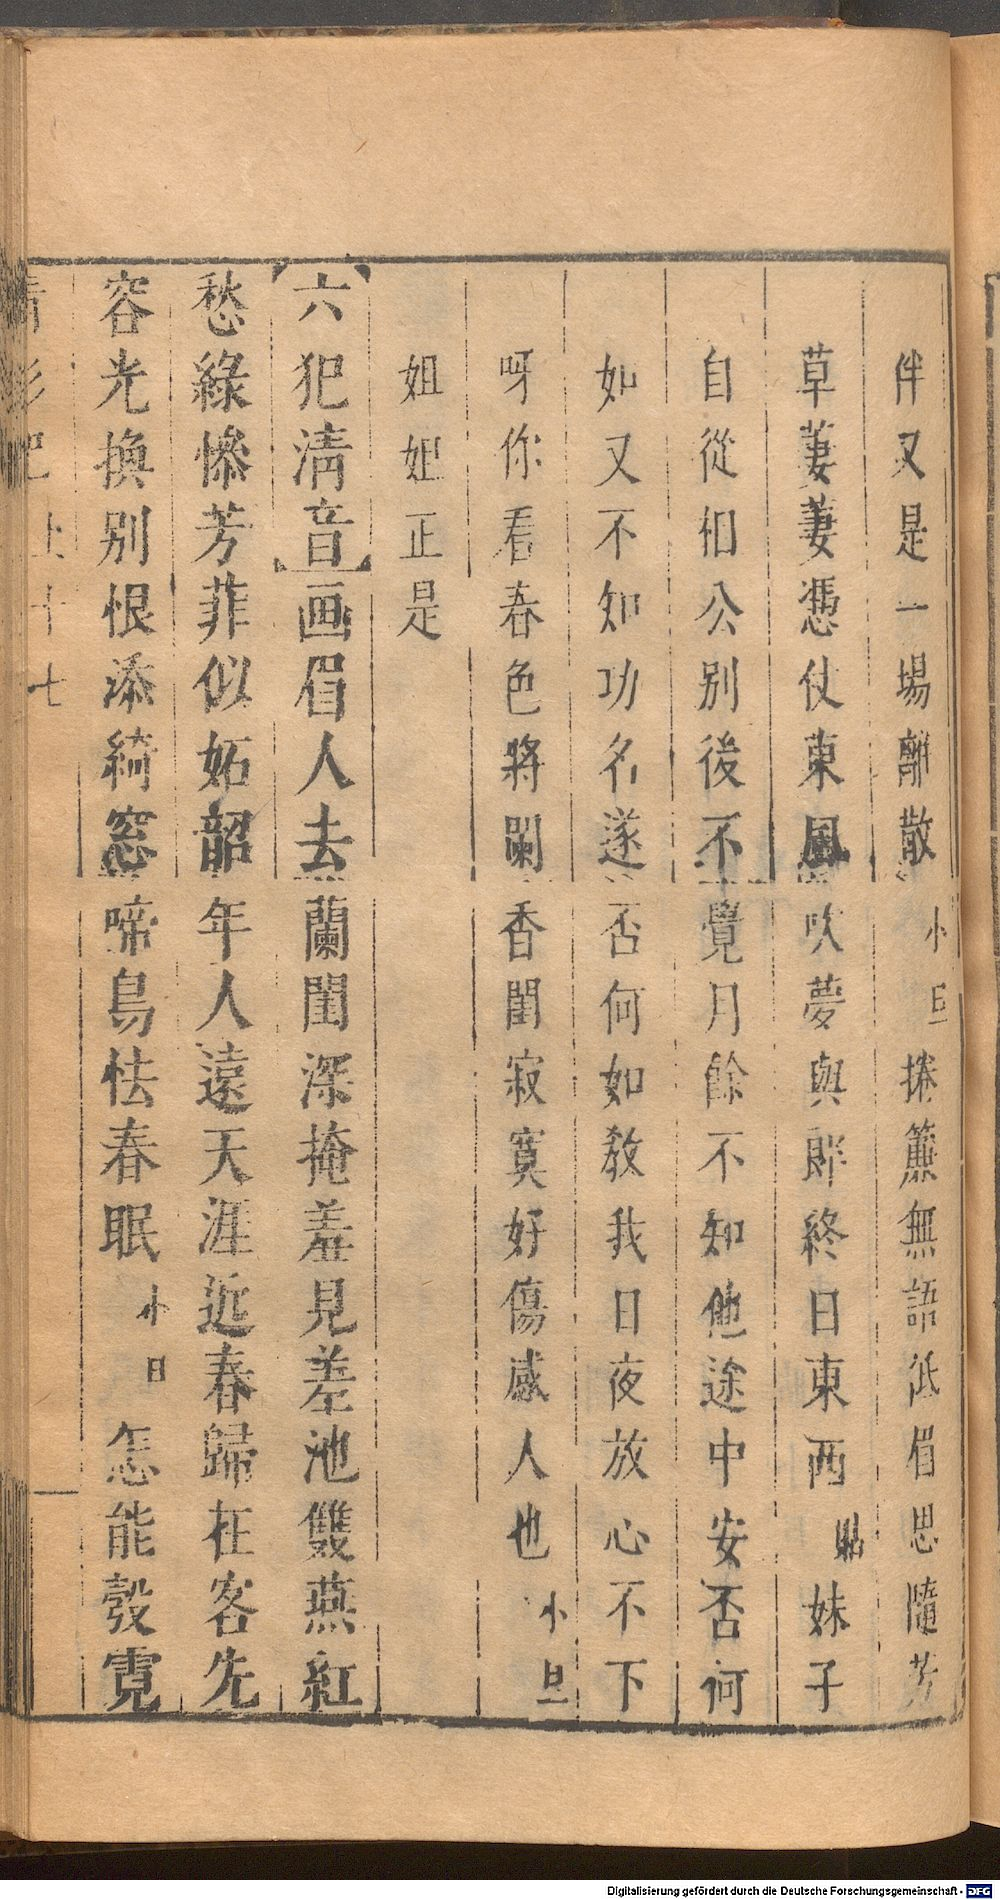 伴又是一場離散小旦捲簾無語低眉思隨芳
草萋萋憑仗東風吹夢與郎終日東西貼妹子
自從相公別後不覺月餘不知他途中安否何
如又不知功名遂否何如教我日夜放心不下
呀你看春色將闌香閨寂寞好傷感人也小旦
姐姐正是
【六犯清音】画眉人去蘭閨深掩羞見差池雙燕紅
愁綠慘芳菲似妬韶年人遠天涯近春歸在客先
容光換別恨添綺窓啼鳥怯春眠小旦怎能彀霓
上十七
Digitalisierung gefördert durch die Deutsche Forschungsgemeinschaft - DFG